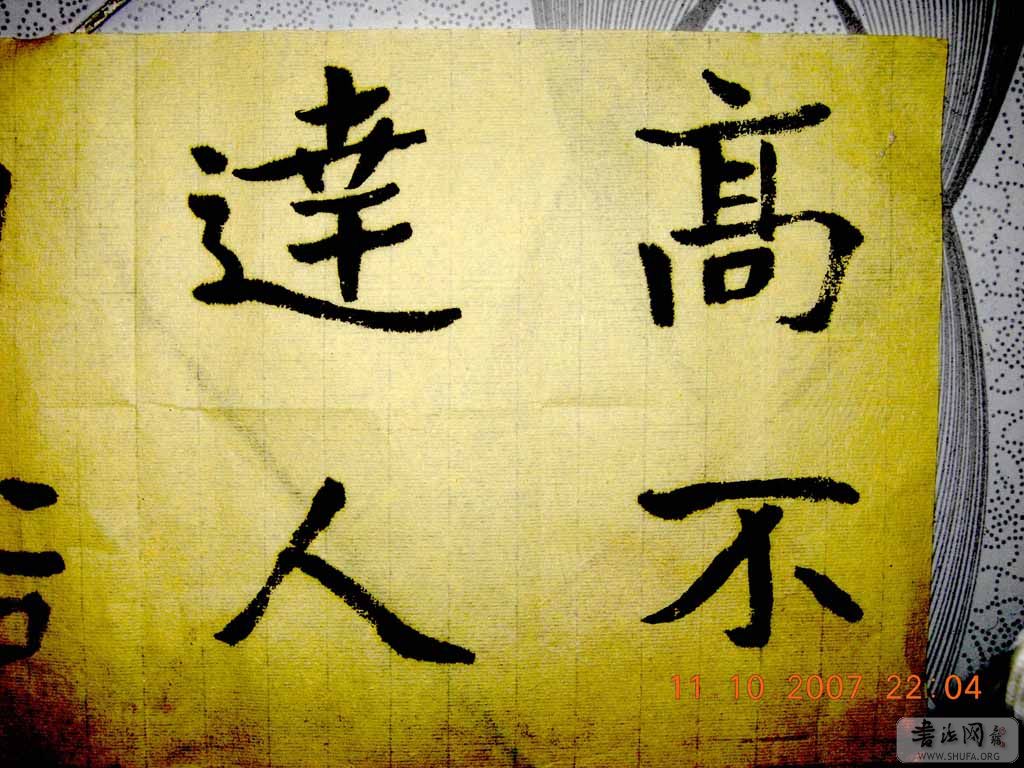 高不
達人
11 10 2007 22:04
書法网
WWW.SHUFA.ORG